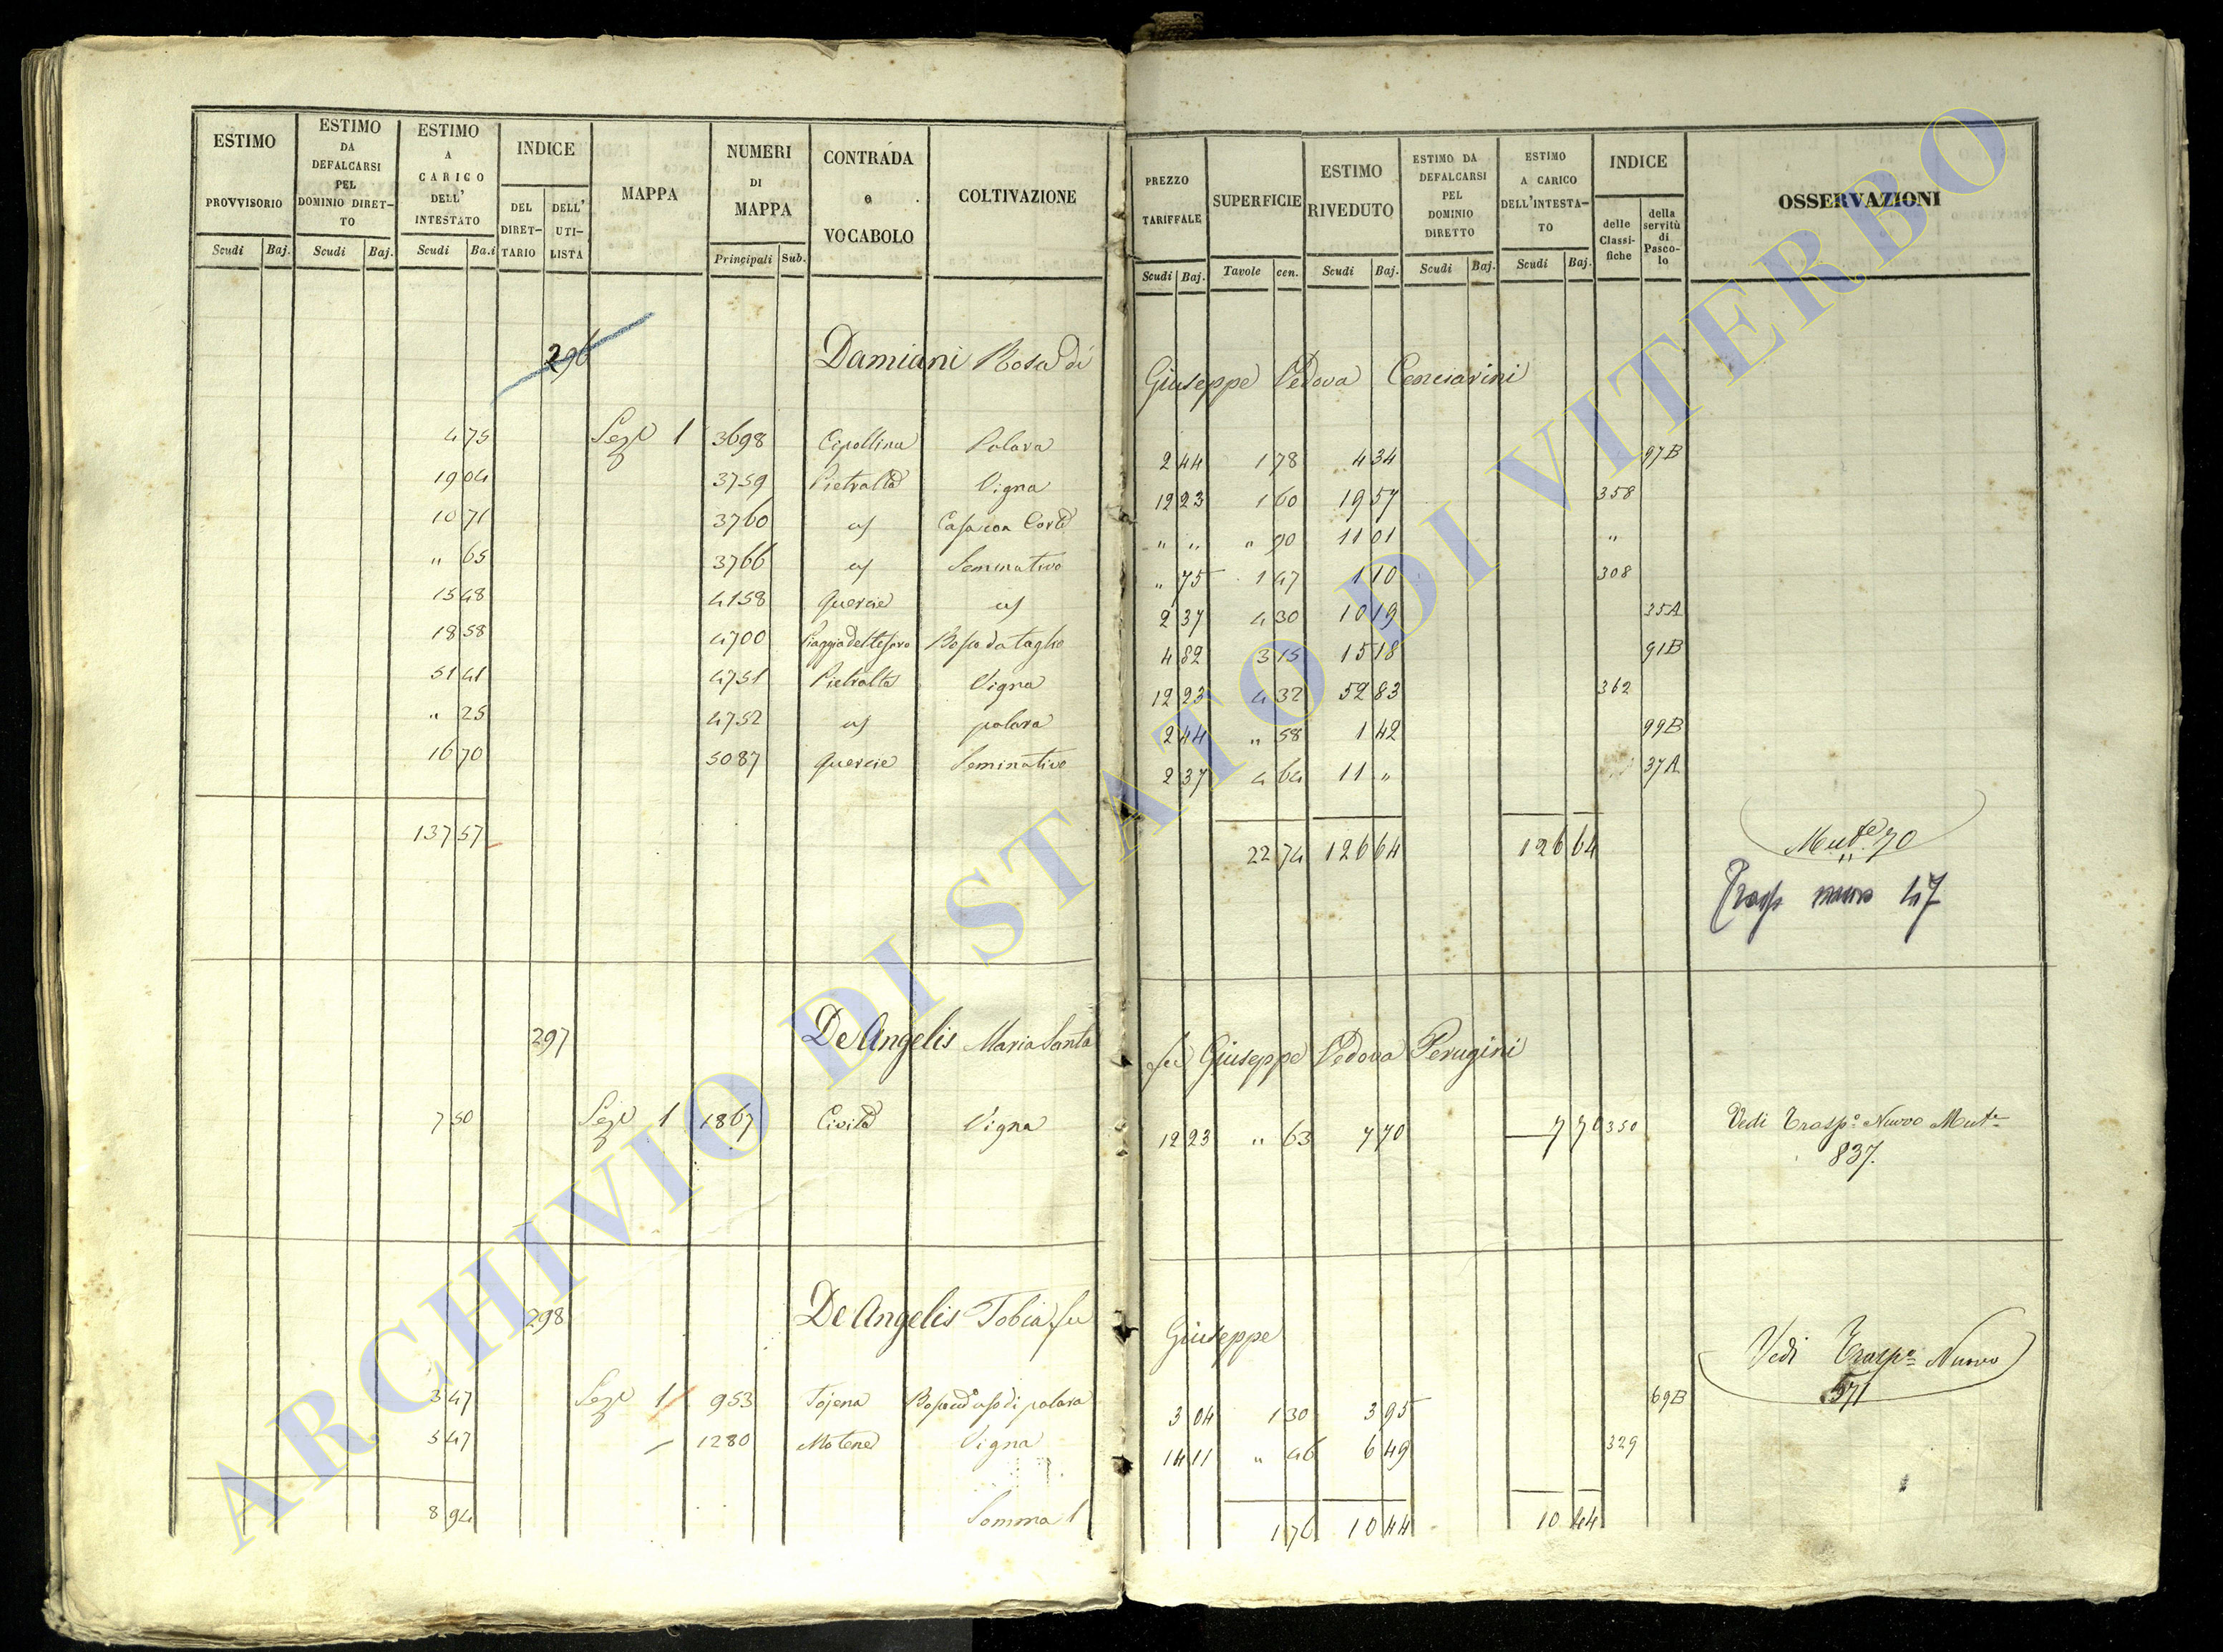 ESTIMO PROVVISORIO Scudi Baj.
ESTIMO DA DEFALCARSI PEL DOMINIO DIRET-TO Scudi Baj.
ESTIMO A CARICO DELL' INTESTATO Scudi Ba.i
INDICE DEL DIRET-TARIO DELL' UTI-LISTA
MAPPA
NUMERI DI MAPPA Principali Sub.
CONTRADA o VOCABOLO
COLTIVAZIONE
PREZZO TARIFFALE Scudi Baj.
SUPERFICIE Tavole cen.
ESTIMO RIVEDUTO Scudi Baj.
ESTIMO DA DEFALCARSI PEL DOMINIO DIRETTO Scudi Baj.
ESTIMO A CARICO DELL'INTESTA-TO Scudi Baj.
INDICE delle Classi-fiche della servitù di Pasco-lo
OSSERVAZIONI
296 Damiani Rosa di Giuseppe Vedova Cenciarini
4 75 Sez.e 1 3698 Cipollina Polara 2 44 1 78 4 34 97B
19 04 3759 Pietralta Vigna 12 23 1 60 19 57 358
10 71 3760 us Casa con Corte " " " 90 11 01 "
" 65 3766 us Seminativo " 75 1 47 1 10 308
15 48 4158 Quercie us 2 37 4 30 10 19 35A
18 58 4700 Piaggia del tesoro Bosco da taglio 4 82 3 15 15 18 91B
51 41 4751 Pietralta Vigna 12 23 4 32 52 83 362
" 25 4752 us polara 2 44 " 58 1 42 99B
16 70 5087 Quercie Seminativo 2 37 4 64 11 " 37A
137 57 22 74 126 64 126 64 Mut.e 70
Trasp nuovo 47
297 De Angelis Maria Santa fu Giuseppe Vedova Perugini
7 50 Sez.e 1 1867 Civita Vigna 12 23 " 63 7 70 7 70 350 Vedi Trasp.o Nuovo Mut.e
837.
298 De Angelis Tobia fu Giuseppe
Vedi Trasp.o Nuovo
571
3 47 Sez.e 1 953 Tojena Bosco ad uso di polara 3 04 1 30 3 95 69B
5 47 1280 Motene Vigna 14 11 " 46 6 49 329
8 94 Somma 1 76 10 44 10 44
ARCHIVIO DI STATO DI VITERBO